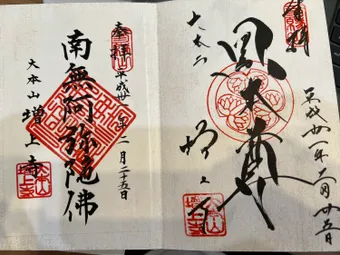 奉拝
平成卅一年二月廿五日
黒本尊
大本山
増上寺
奉拝
平成卅一年二月二十五日
南無阿弥陀佛
大本山 増上寺